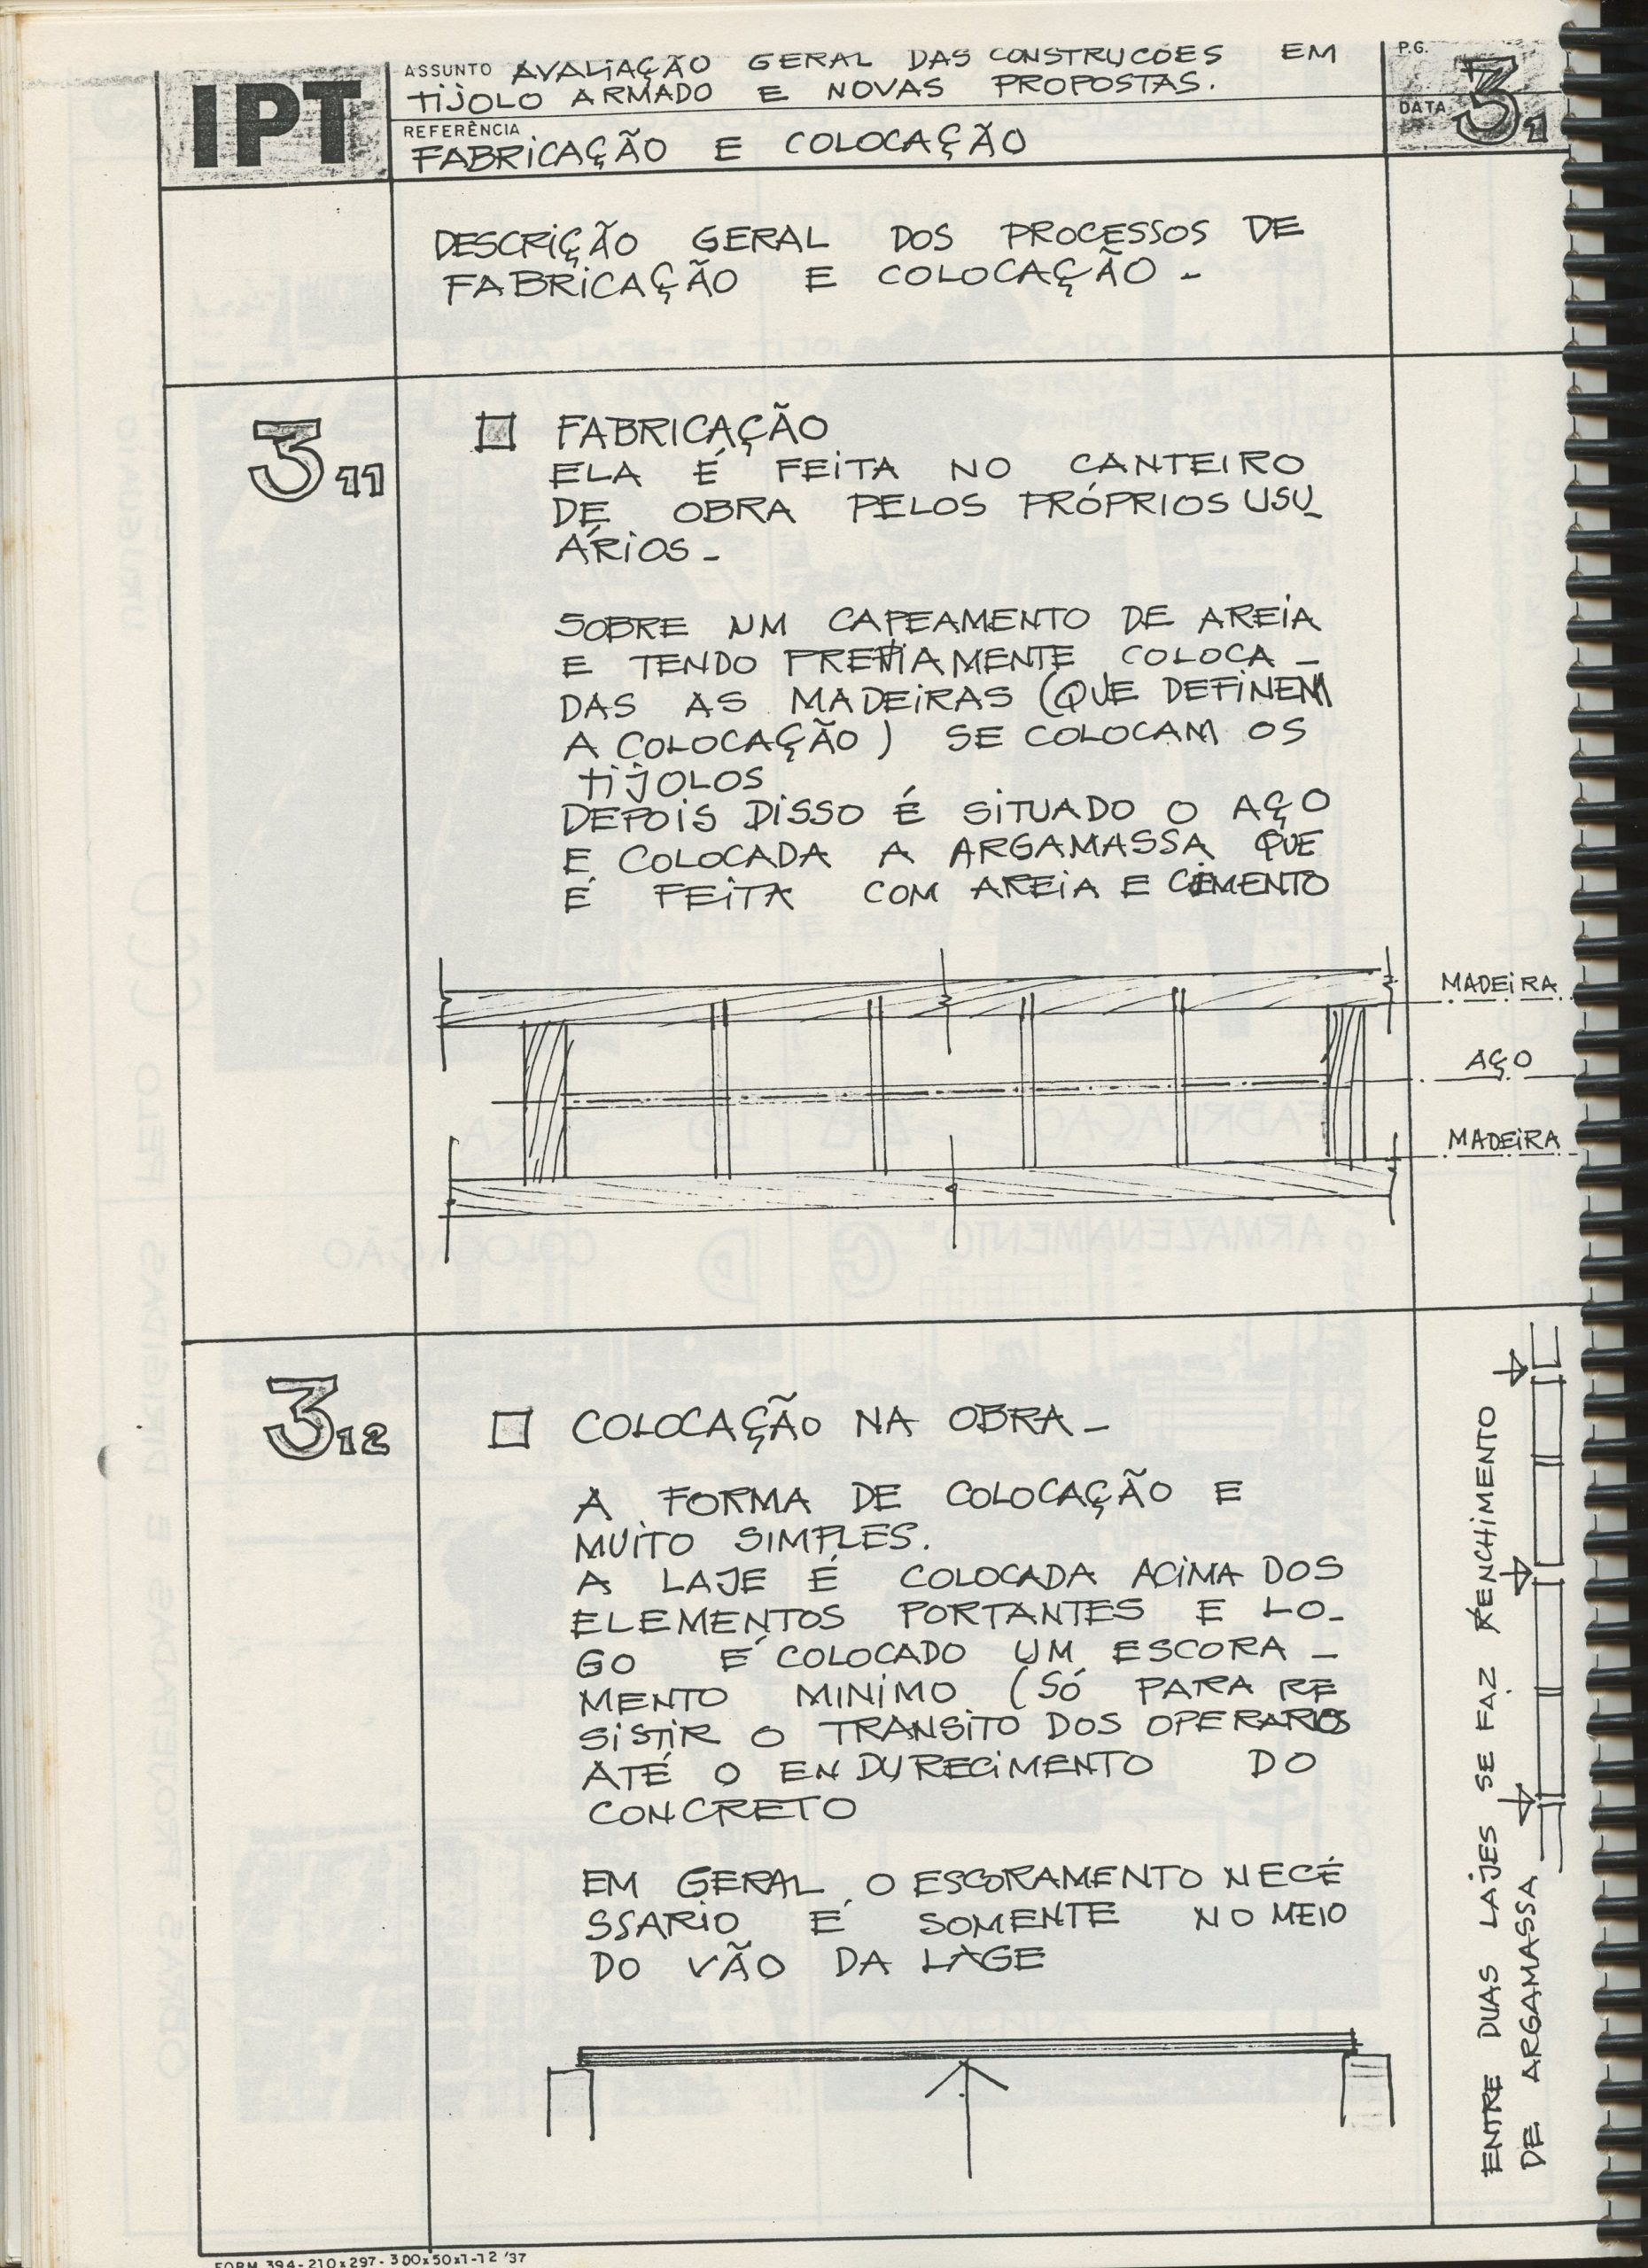 IPT
ASSUNTO AVALIAÇÃO GERAL DAS CONSTRUCÕES EM
TIJOLO ARMADO E NOVAS PROPOSTAS.
REFERÊNCIA
FABRICAÇÃO E COLOCAÇÃO
P.G.
DATA
3 1
DESCRIÇÃO GERAL DOS PROCESSOS DE
FABRICAÇÃO E COLOCAÇÃO -
3 11
FABRICAÇÃO
ELA É FEITA NO CANTEIRO
DE OBRA PELOS PRÓPRIOS USU_
ÁRIOS -
SOBRE UM CAPEAMENTO DE AREIA
E TENDO PREVIAMENTE COLOCA -
DAS AS MADEIRAS (QUE DEFINEM
A COLOCAÇÃO) SE COLOCAM OS
TIJOLOS
DEPOIS DISSO É SITUADO O AÇO
E COLOCADA A ARGAMASSA QUE
É FEITA COM AREIA E CIMENTO
MADEIRA
AÇO
MADEIRA
3 12
COLOCAÇÃO NA OBRA -
A FORMA DE COLOCAÇÃO E
MUITO SIMPLES.
A LAJE É COLOCADA ACIMA DOS
ELEMENTOS PORTANTES E LO-
GO É COLOCADO UM ESCORA -
MENTO MINIMO (SÓ PARA RE
SISTIR O TRANSITO DOS OPERARIOS
ATÉ O ENDURECIMENTO DO
CONCRETO
EM GERAL, O ESCORAMENTO NECÉ
SSARIO É SOMENTE NO MEIO
DO VÃO DA LAGE
ENTRE DUAS LAJES SE FAZ RENCHIMENTO
DE ARGAMASSA
FORM 394-210x297-300x50x1-12 '37